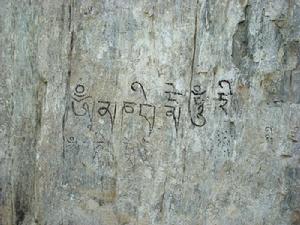 ཨོཾ་མ་ཎི་པདྨེ་ཧཱུྃ་ཧྲཱི